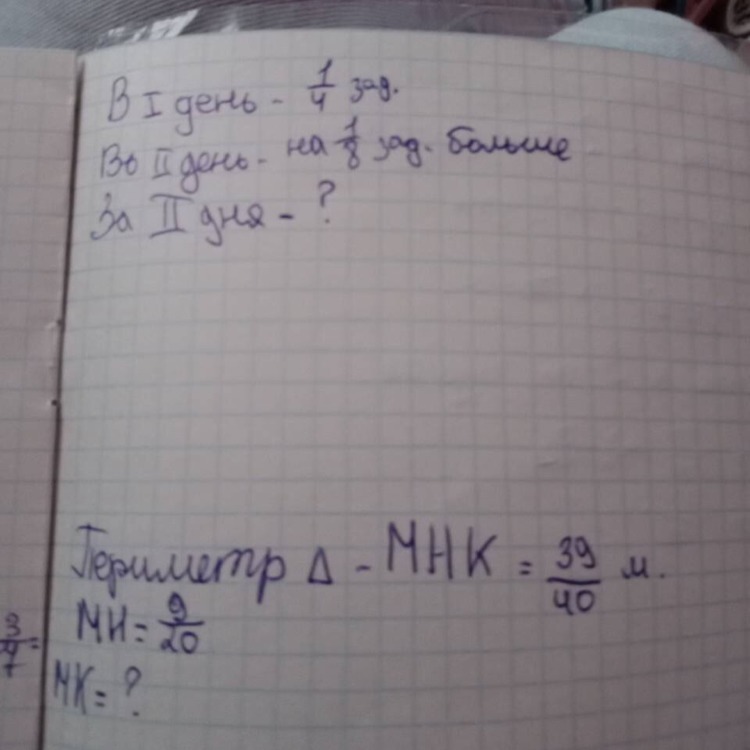 В I день - 1/4 зад.
Во II день - на 1/8 зад. больше
За II дня - ?
Периметр Δ - МНК = 39/40 м.
МН = 9/20
МК = ?
3/7 =